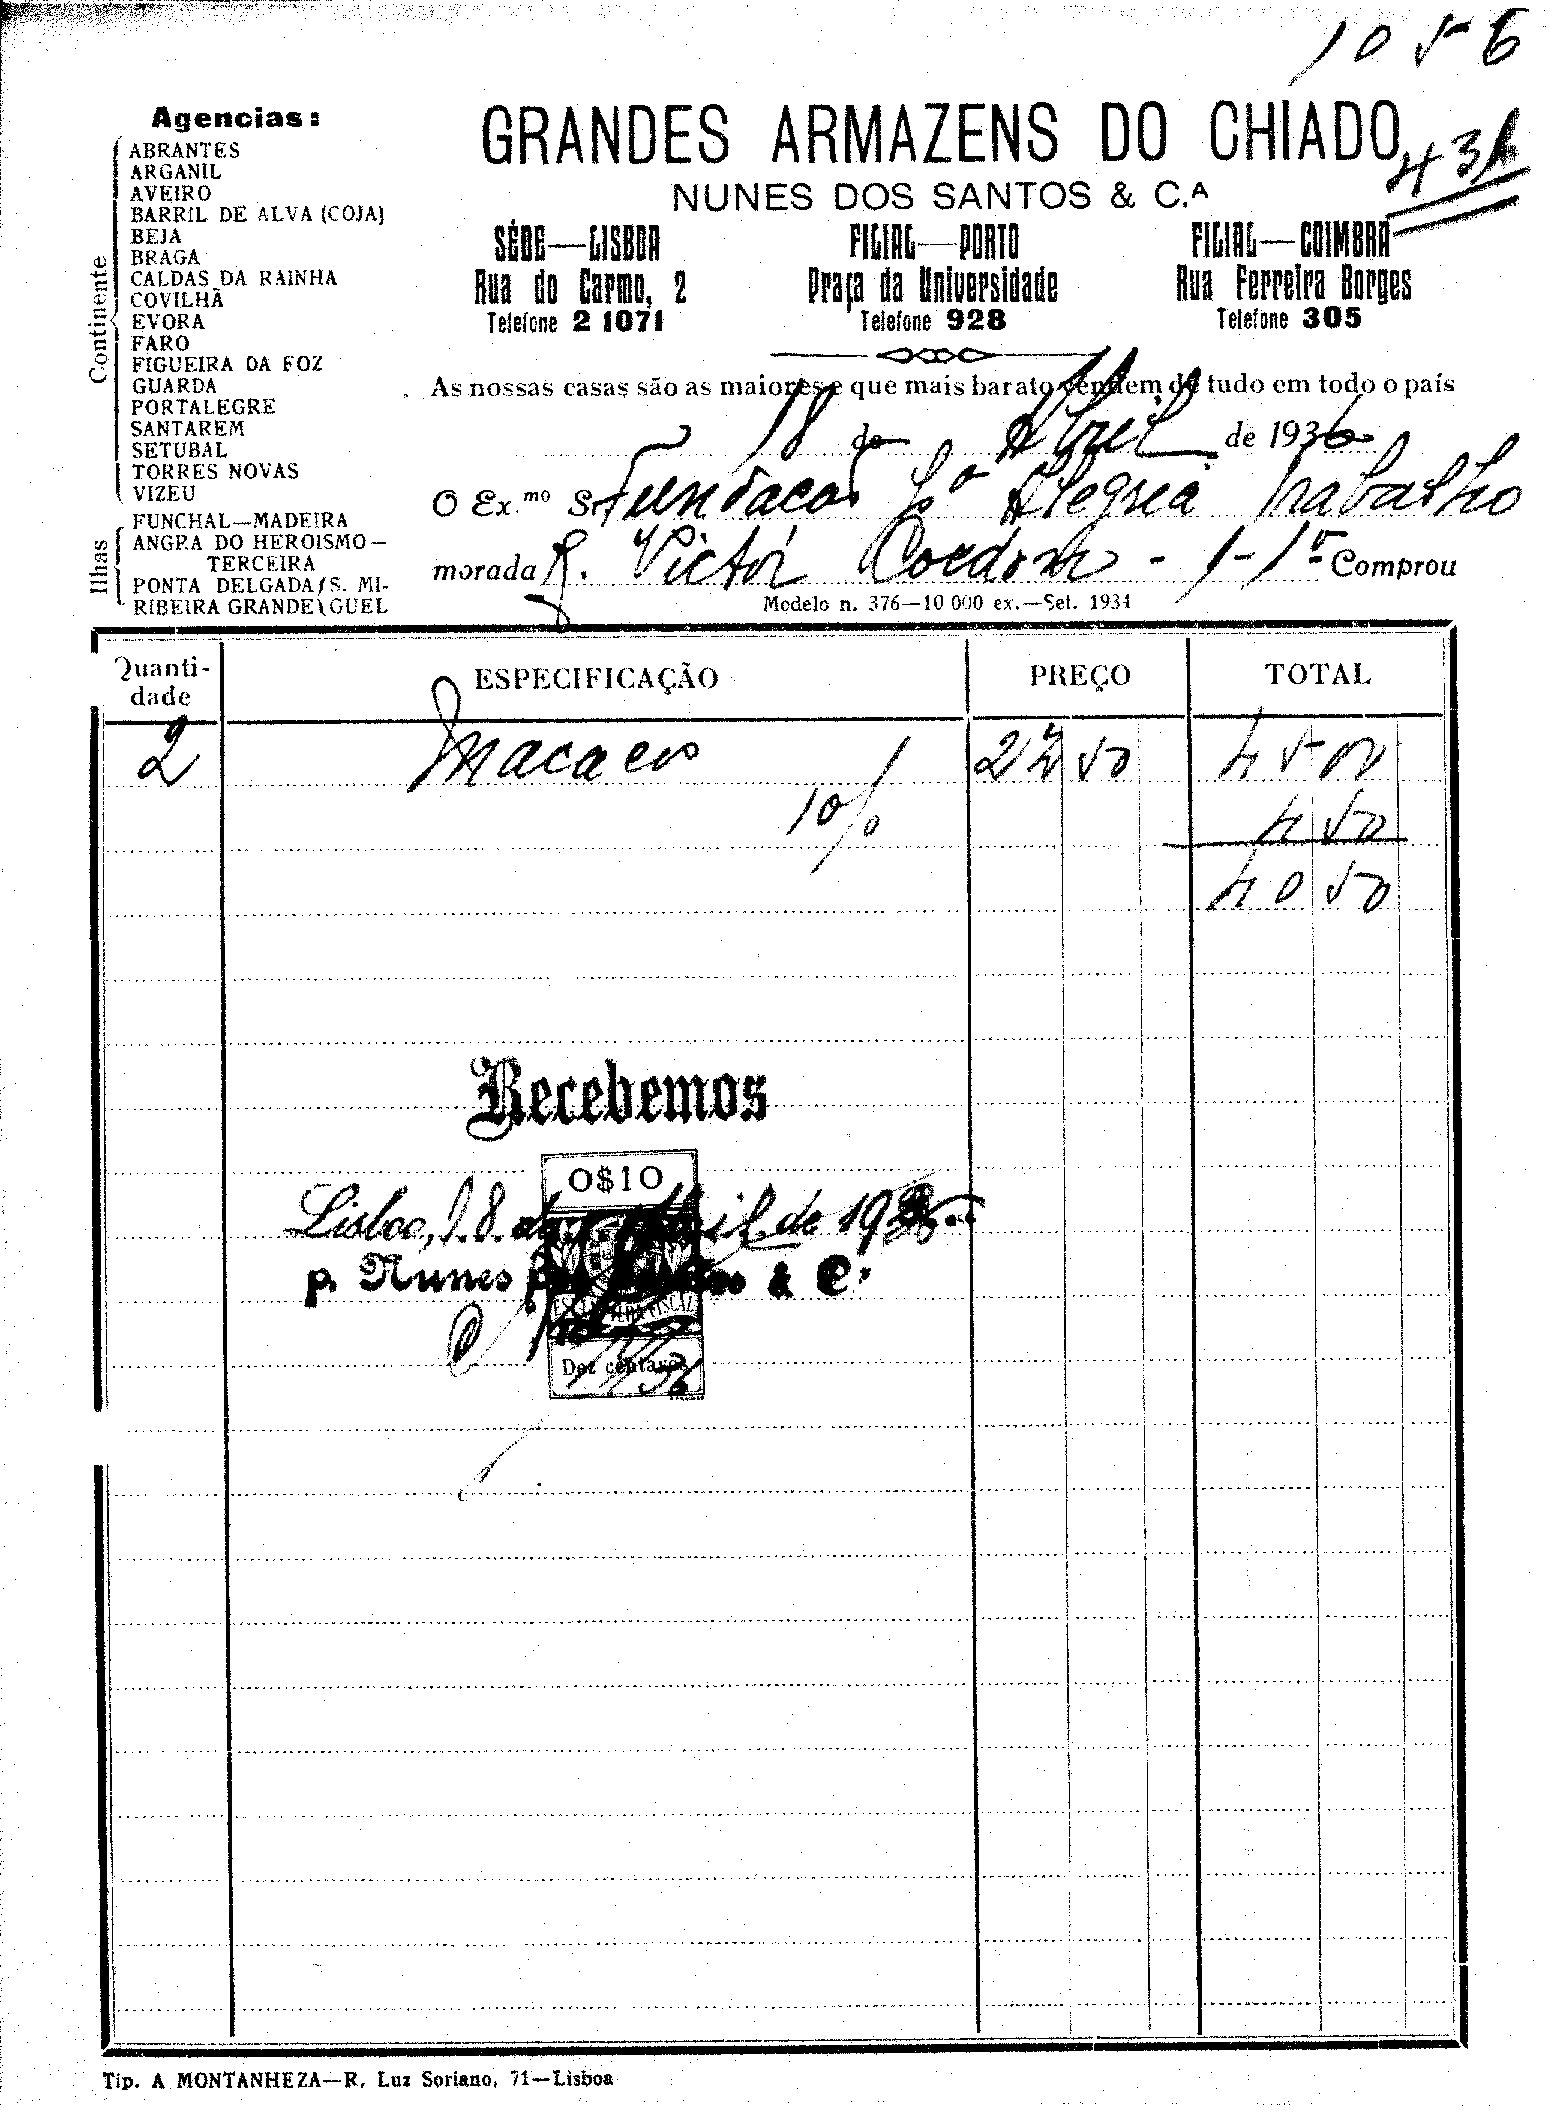 1056
GRANDES ARMAZENS DO CHIADO
43
NUNES DOS SANTOS & C.ᴬ
SÉDE—LISBOA
Rua do Carmo, 2
Telefone 2 1071
FILIAL—PORTO
Praça da Universidade
Telefone 928
FILIAL—COIMBRA
Rua Ferreira Borges
Telefone 305
Agencias:
Continente
ABRANTES
ARGANIL
AVEIRO
BARRIL DE ALVA (COJA)
BEJA
BRAGA
CALDAS DA RAINHA
COVILHÃ
EVORA
FARO
FIGUEIRA DA FOZ
GUARDA
PORTALEGRE
SANTAREM
SETUBAL
TORRES NOVAS
VIZEU
Ilhas
FUNCHAL—MADEIRA
ANGRA DO HEROISMO—
TERCEIRA
PONTA DELGADA (S. MI-
RIBEIRA GRANDE \ GUEL
As nossas casas são as maiores e que mais barato vendem de tudo em todo o país
18 de Abril de 1936
O Ex.mo Sr. Fundacao Pª Alegria Trabalho
morada R. Victor Cordon - 1-1º Comprou
Modelo n. 376—10 000 ex.—Set. 1934
Quanti-dade ESPECIFICAÇÃO PREÇO TOTAL
2 Macacos 22 50 45 00
10% 4 50
40 50
Recebemos
0$10
Lisboa, 18 de Abril de 1936
p. Nunes dos Santos & C.ª
Dez centavos
Tip. A MONTANHEZA—R. Luz Soriano, 71—Lisboa